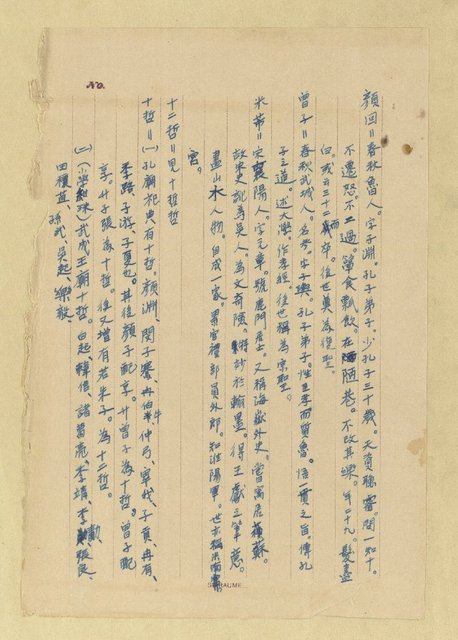 No.
顏回＝春秋魯人。字子淵。孔子弟子。少孔子三十歲。天資聰睿。聞一知十。
不遷怒。不二過。簞食瓢飲。在陋巷。不改其樂。年二十九。髮盡
白。或云三十二而卒。後世奠為復聖。
曾子＝春秋武城人。名參。字子輿。孔子弟子。性至孝而質魯。悟一貫之旨。傳孔
子之道。述大學作孝經。後世稱為宗聖。
米芾＝宋襄陽人。字元章。號鹿門居士。又稱海嶽外史。嘗寓居蘇。
故宋史訛為吳人。為文奇險。特妙於翰墨。得王獻之筆意。
畫山水人物。自成一家。累官禮部員外郎。知淮陽軍。世亦稱米南
宮。
十二哲＝見十哲
十哲＝(一)孔廟祀典有十哲。顏淵、閔子騫、冉伯牛、仲弓、宰我、子貢、冉有、
季路、子游、子夏也。其後顏子配享。升曾子為十哲。曾子配
享。升子張為十哲。後又增有若朱子。為十二哲。
(二)(小學紺珠)武成王廟十哲。白起、韓信、諸葛亮、李靖、李勣、張良、
田穰苴、孫武、吳起、樂毅、